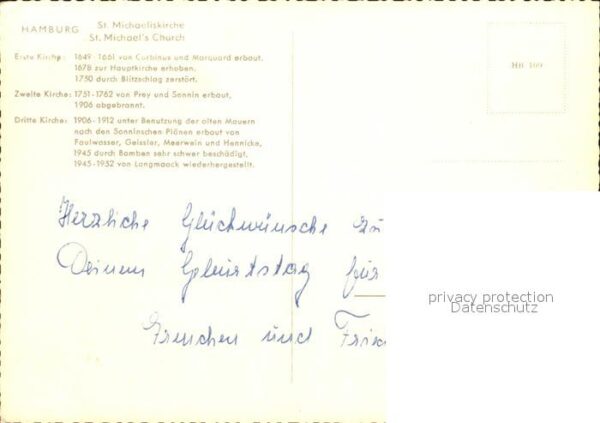 HAMBURG St. Michaeliskirche
St. Michael's Church
Erste Kirche: 1649-1661 von Corbinus und Marquard erbaut.
1678 zur Hauptkirche erhoben.
1750 durch Blitzschlag zerstört.
Zweite Kirche: 1751-1762 von Prey und Sonnin erbaut,
1906 abgebrannt.
Dritte Kirche: 1906-1912 unter Benutzung der alten Mauern
nach den Sonninschen Plänen erbaut von
Faulwasser, Geissler, Meerwein und Hennicke,
1945 durch Bomben sehr schwer beschädigt,
1945-1952 von Langmaack wiederhergestellt.
HH 109
Herzliche Glückwünsche zu
Deinem Geburtstag für
und
privacy protection
Datenschutz